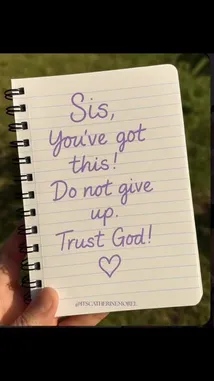 Sis,
You've got
this!
Do not give
up.
Trust God!
@ITSCATHERINEMOBEL